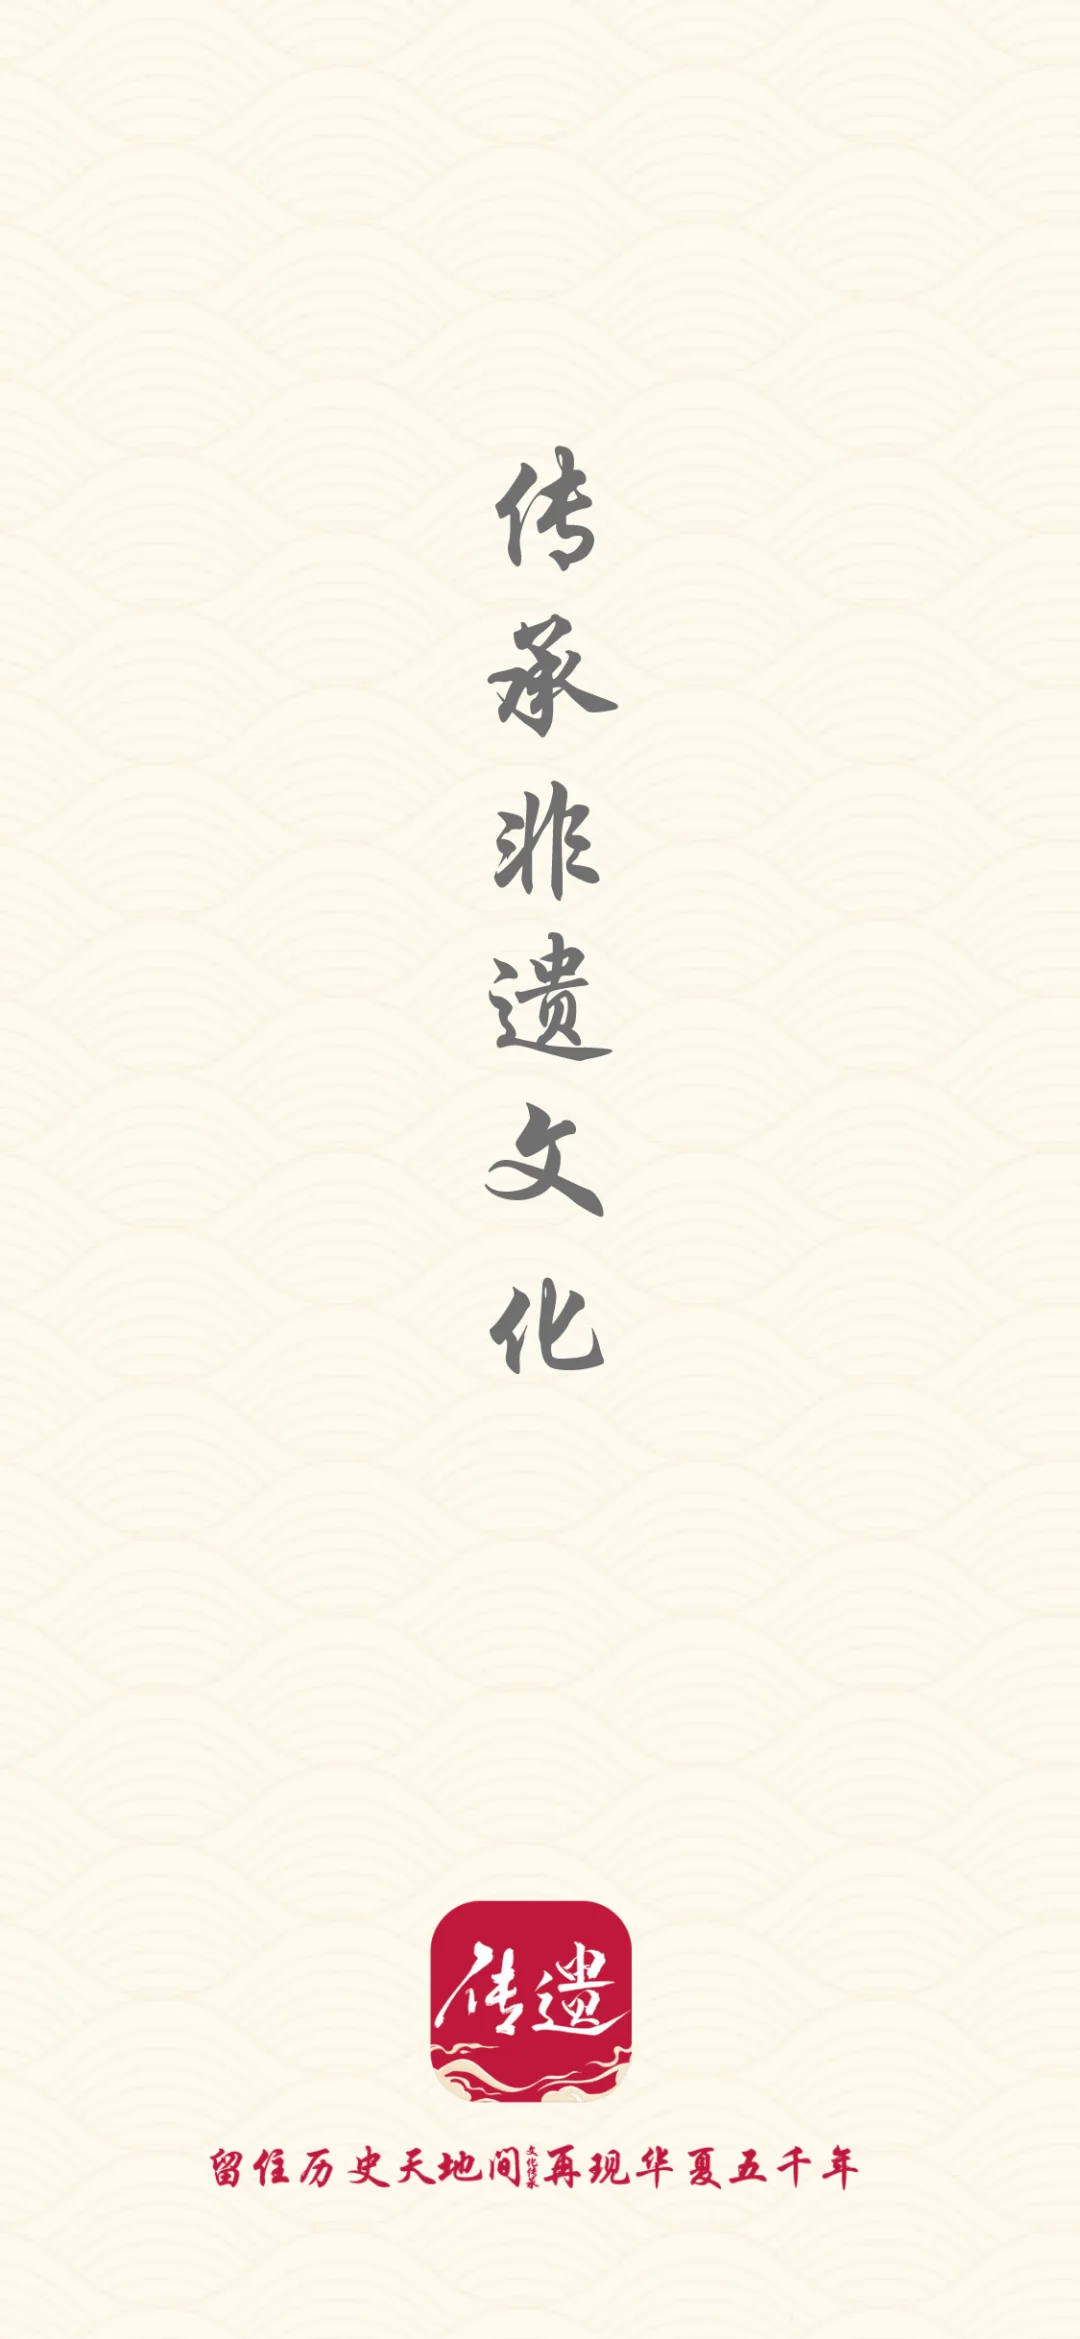 传承非遗文化
传遗
留住历史天地间文化传承再现华夏五千年